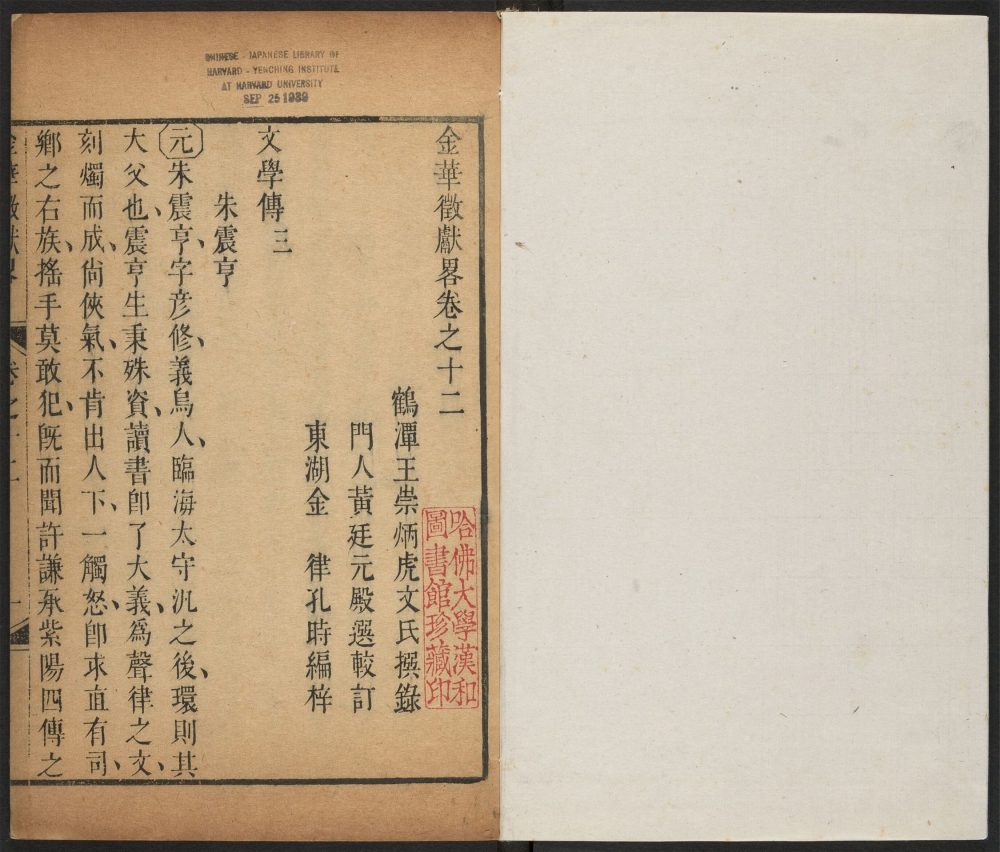 CHINESE - JAPANESE LIBRARY OF
HARVARD - YENCHING INSTITUTE
AT HARVARD UNIVERSITY
SEP 25 1939
金華徵獻畧卷之十二
鶴潭王崇炳虎文氏撰錄
門人黃廷元殿選較訂
東湖金　律孔時編梓
哈佛大學漢和
圖書館珍藏印
文學傳三
朱震亨
元朱震亨、字彥修、義烏人、臨海太守汎之後、環則其
大父也、震亨生秉殊資、讀書卽了大義、爲聲律之文、
刻燭而成、尙俠氣、不肯出人下、一觸怒、卽求直有司、
鄉之右族、搖手莫敢犯、旣而聞許謙承紫陽四傳之
金華徵獻畧
卷之十二
一